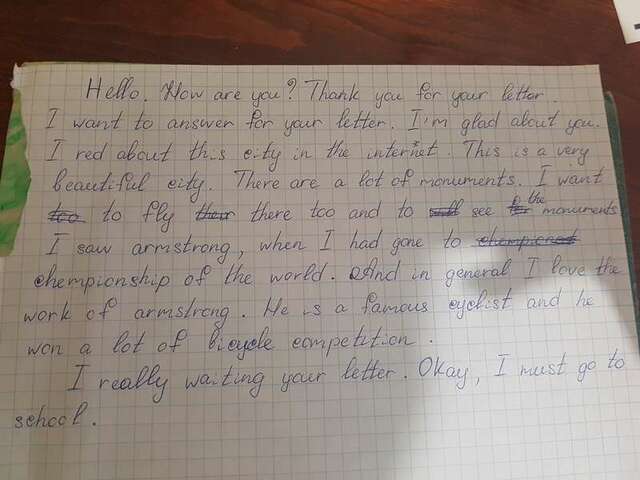 Hello. How are you? Thank you for your letter.
I want to answer for your letter. I'm glad about you.
I red about this city in the internet. This is a very
beautiful city. There are a lot of monuments. I want
too to fly their there too and to see the monuments
I saw armstrong, when I had gone to
chempionship of the world. And in general I love the
work of armstrong. He is a famous cyclist and he
won a lot of bicycle competition.
I really waiting your letter. Okay, I must go to
school.